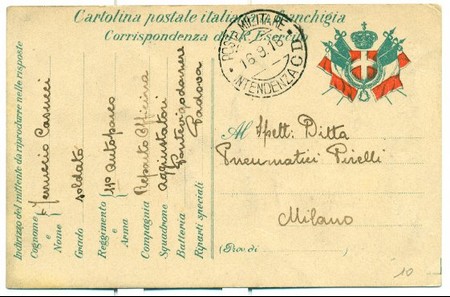 Cartolina postale italiana in franchigia
Corrispondenza del R. Esercito
POSTA MILITARE
16.9.18
INTENDENZA
Al Spett: Ditta
Pneumatici Pirelli
Milano
(Prov. di
10
Indirizzo del mittente da riprodurre nelle risposte
Cognome e Nome
Ferruccio Casucci
Grado
soldato
Reggimento e Arma
11° Autoparco
Compagnia
Reparto Officina
Squadrone
Aggiustatori
Batteria
Pontevigodarzere
Riparti speciali
Padova